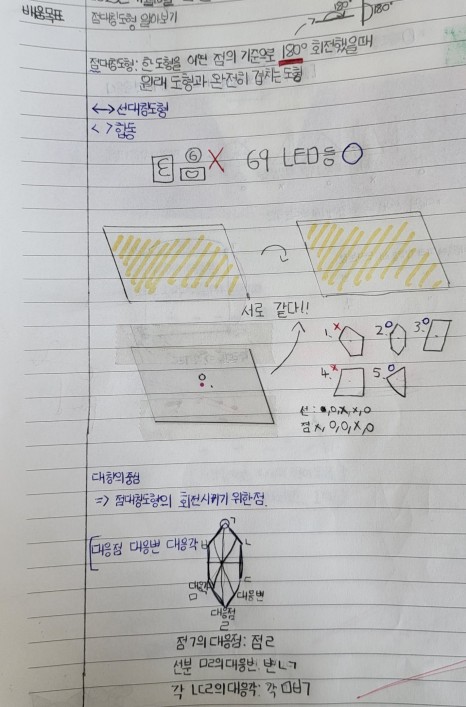 배움목표
점대칭도형 알아보기
180° 180°
점대칭도형: 한 도형을 어떤 점의 기준으로 180° 회전했을때
원래 도형과 완전히 겹치는 도형
<-> 선대칭도형
< > 합동
69 LED등
서로 같다!!
1. 2. 3.
4. 5.
선: 0, x, x, 0
점 x, 0, 0, x, 0
대칭의중심
=> 점대칭도형의 회전시키기 위한점.
ㄱ
대응점 대응변 대응각 ㅂ ㄴ
ㄷ
대응각
ㅁ 대응변
대응점
ㄹ
점ㄱ의 대응점: 점ㄹ
선분 ㅁㄹ의 대응변: 변ㄴㄱ
각 ㄴㄷㄹ의 대응각: 각 ㅁㅂㄱ